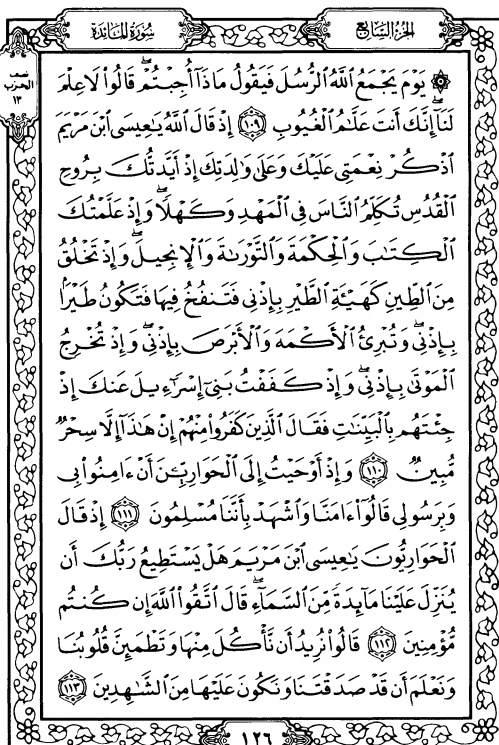 الجزء السابع
سورة المائدة
نصف
الحزب
١٣
۞ يَوْمَ يَجْمَعُ اللَّهُ الرُّسُلَ فَيَقُولُ مَاذَآ أُجِبْتُمْۖ قَالُوا۟ لَا عِلْمَ
لَنَآۖ إِنَّكَ أَنتَ عَلَّٰمُ الْغُيُوبِ ١٠٩ إِذْ قَالَ اللَّهُ يَٰعِيسَى ابْنَ مَرْيَمَ
اذْكُرْ نِعْمَتِى عَلَيْكَ وَعَلَىٰ وَٰلِدَتِكَ إِذْ أَيَّدتُّكَ بِرُوحِ
الْقُدُسِ تُكَلِّمُ النَّاسَ فِى الْمَهْدِ وَكَهْلًاۖ وَإِذْ عَلَّمْتُكَ
الْكِتَٰبَ وَالْحِكْمَةَ وَالتَّوْرَىٰةَ وَالْإِنجِيلَۖ وَإِذْ تَخْلُقُ
مِنَ الطِّينِ كَهَيْـَٔةِ الطَّيْرِ بِإِذْنِى فَتَنفُخُ فِيهَا فَتَكُونُ طَيْرًۢا
بِإِذْنِىۖ وَتُبْرِئُ الْأَكْمَهَ وَالْأَبْرَصَ بِإِذْنِىۖ وَإِذْ تُخْرِجُ
الْمَوْتَىٰ بِإِذْنِىۖ وَإِذْ كَفَفْتُ بَنِىٓ إِسْرَٰٓءِيلَ عَنكَ إِذْ
جِئْتَهُم بِالْبَيِّنَٰتِ فَقَالَ الَّذِينَ كَفَرُوا۟ مِنْهُمْ إِنْ هَٰذَآ إِلَّا سِحْرٌ
مُّبِينٌ ١١٠ وَإِذْ أَوْحَيْتُ إِلَى الْحَوَارِيِّـۧنَ أَنْ ءَامِنُوا۟ بِى
وَبِرَسُولِى قَالُوٓا۟ ءَامَنَّا وَاشْهَدْ بِأَنَّنَا مُسْلِمُونَ ١١١ إِذْ قَالَ
الْحَوَارِيُّونَ يَٰعِيسَى ابْنَ مَرْيَمَ هَلْ يَسْتَطِيعُ رَبُّكَ أَن
يُنَزِّلَ عَلَيْنَا مَآئِدَةً مِّنَ السَّمَآءِۖ قَالَ اتَّقُوا۟ اللَّهَ إِن كُنتُم
مُّؤْمِنِينَ ١١٢ قَالُوا۟ نُرِيدُ أَن نَّأْكُلَ مِنْهَا وَتَطْمَئِنَّ قُلُوبُنَا
وَنَعْلَمَ أَن قَدْ صَدَقْتَنَا وَنَكُونَ عَلَيْهَا مِنَ الشَّٰهِدِينَ ١١٣
١٢٦